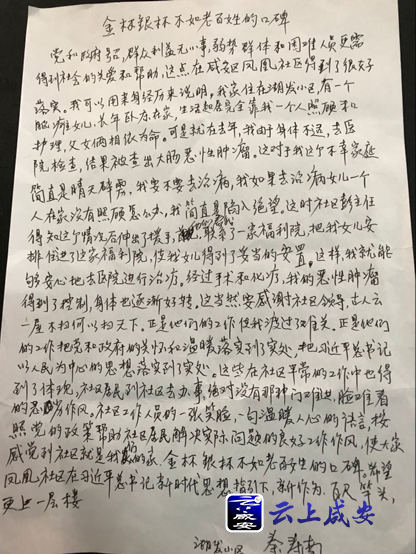 金杯银杯不如老百姓的口碑
党和政府号召,群众利益无小事,弱势群体和困难人员更需
得到社会的关爱和帮助,这点在咸安区凤凰社区得到了很好
落实。我可以用亲身经历来说明,我家住在湖发小区,有一个
脑瘫女儿,长年卧床在家,生活起居完全靠我一个人照顾和
护理,父女俩相依为命。可是就在去年,我由于身体不适,去医
院检查,结果被查出大肠恶性肿瘤。这对于我这个不幸家庭
简直是晴天霹雳。我要不要去治病,我如果去治病女儿一个
人在家没有照顾怎么办,我简直是陷入绝望。这时社区彭主任
得知这个情况后伸出了援手,联系了一家福利院,把我女儿安
排住进了这家福利院,使我女儿得到了妥当的安置。这样,我就能
够安心地去医院进行治疗,经过手术和化疗,我的恶性肿瘤
得到了控制,身体也逐渐好转。这当然要感谢社区领导,古人云
一屋不扫何以扫天下。正是他们的工作使我渡过了难关。正是他们
的工作把党和政府的关怀和温暖落实到了实处,把习近平总书记
以人民为中心的思想落实到了实处。这些在社区平常的工作中也得
到了体现,社区居民到社区去办事,绝对没有那种门难进,脸难看
的恶劣作风。社区工作人员的一张笑脸,一句温暖人心的话言,按
照党的政策帮助社区居民解决实际问题的良好工作作风,使大家
感觉到社区就是我们的家。金杯银杯不如老百姓的口碑,希望
凤凰社区在习近平总书记新时代思想指引下,新作为,百尺竿头,
更上一层楼
湖发小区 秦寿南
云上咸安